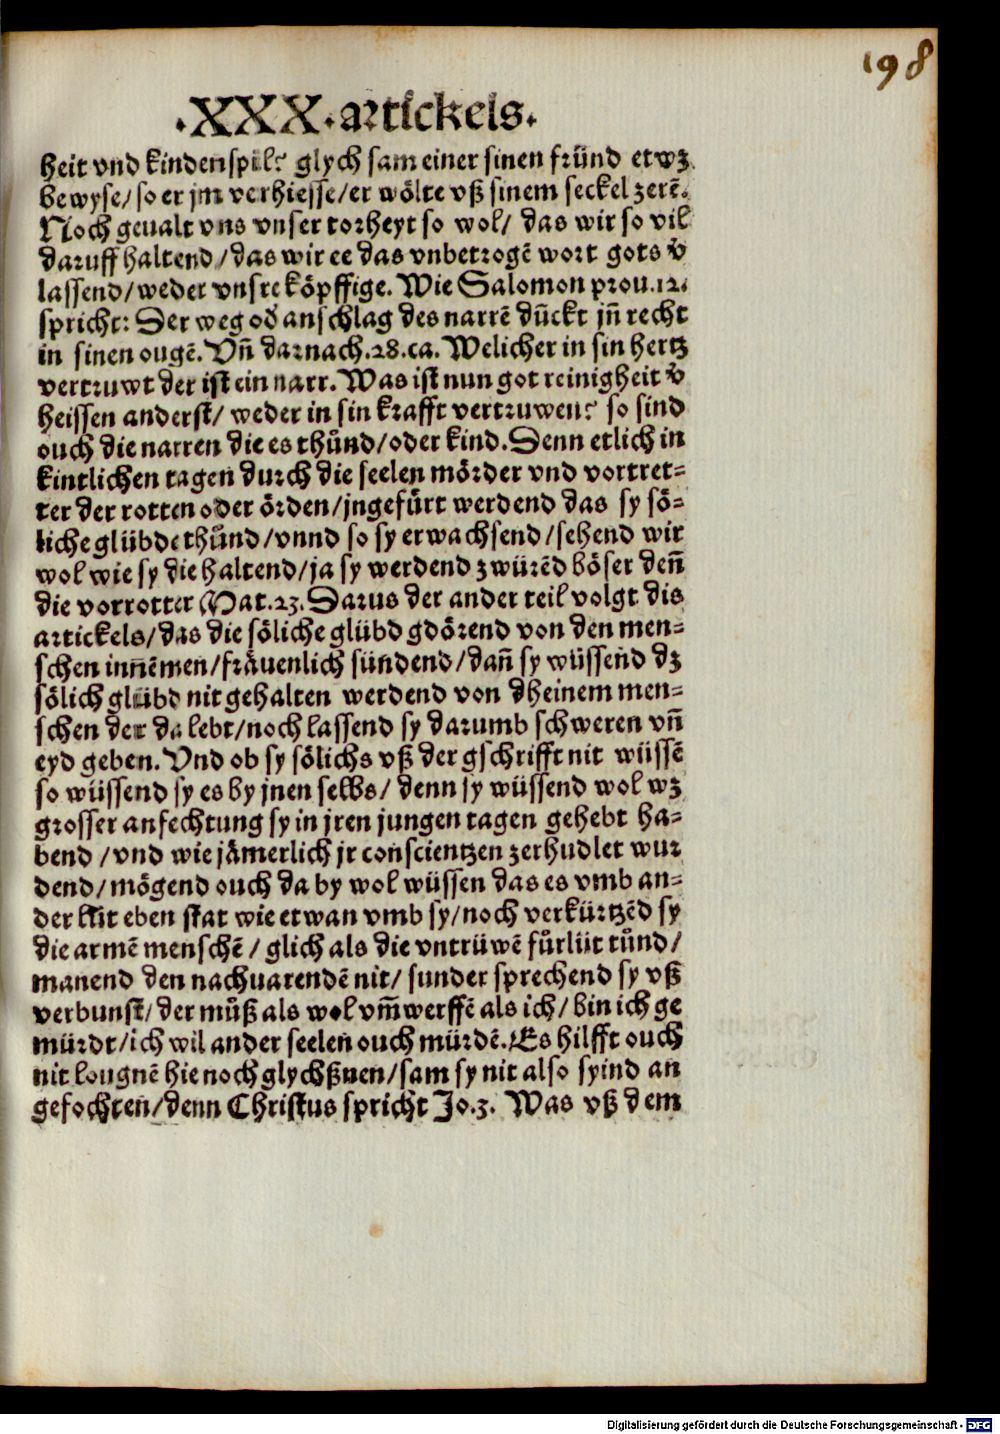 198
.XXX.artickels.
heit vnd kindenspil? glych sam einer sinen fründ etwz
bewyse/ so er jm verhiesse/er wölte vß sinem seckel zerē.
Noch geualt vns vnser torheyt so wol/ das wir so vil
daruff haltend/das wir ee das vnbetrogē wort gots v̄
lassend/weder vnsre köpffige. Wie Salomon prou.12.
spricht: Der weg od anschlag des narrē dūckt jn̄ recht
in sinen ougē. Vn̄ darnach.28.ca. Welicher in sin hertz
vertruwt der ist ein narr. Was ist nun got reinigheit v̄
heissen anderst/ weder in sin krafft vertruwen? so sind
ouch die narren die es thůnd/oder kind. Denn etlich in
kintlichen tagen durch die seelen mörder vnd vortret-
ter der rotten oder örden/jngefürt werdend das sy sö-
liche glübde thůnd/vnnd so sy erwachsend/sehend wir
wol wie sy die haltend/ja sy werdend zwürēd böser den̄
die vorrotter Mat.23. Darus der ander teil volgt dis
artickels/das die söliche glübd gdörend von den men-
schen innēmen/fräuenlich sündend/dan̄ sy wüssend dz
sölich glübd nit gehalten werdend von dheinem men-
schen der da lebt/noch lassend sy darumb schweren vn̄
eyd geben. Vnd ob sy sölichs vß der gschrifft nit wüssē
so wüssend sy es by jnen selbs/ denn sy wüssend wol wz
grosser anfechtung sy in jren jungen tagen gehebt ha-
bend /vnd wie jämerlich jr conscientzen zerhudlet wur
dend/mögend ouch da by wol wüssen das es vmb an-
der lüt eben stat wie etwan vmb sy/noch verkürtzēd sy
die armē menschē/ glich als die vntrüwē fürlüt tůnd/
manend den nachuarendē nit/ sunder sprechend sy vß
verbunst/der můß als wol vm̄werffē als ich/ bin ich ge
mürdt/ich wil ander seelen ouch mürdē. Es hilfft ouch
nit lougnē hie noch glychßnen/sam sy nit also syind an
gefochten/denn Christus spricht Jo.3. Was vß dem
Digitalisierung gefördert durch die Deutsche Forschungsgemeinschaft - DFG